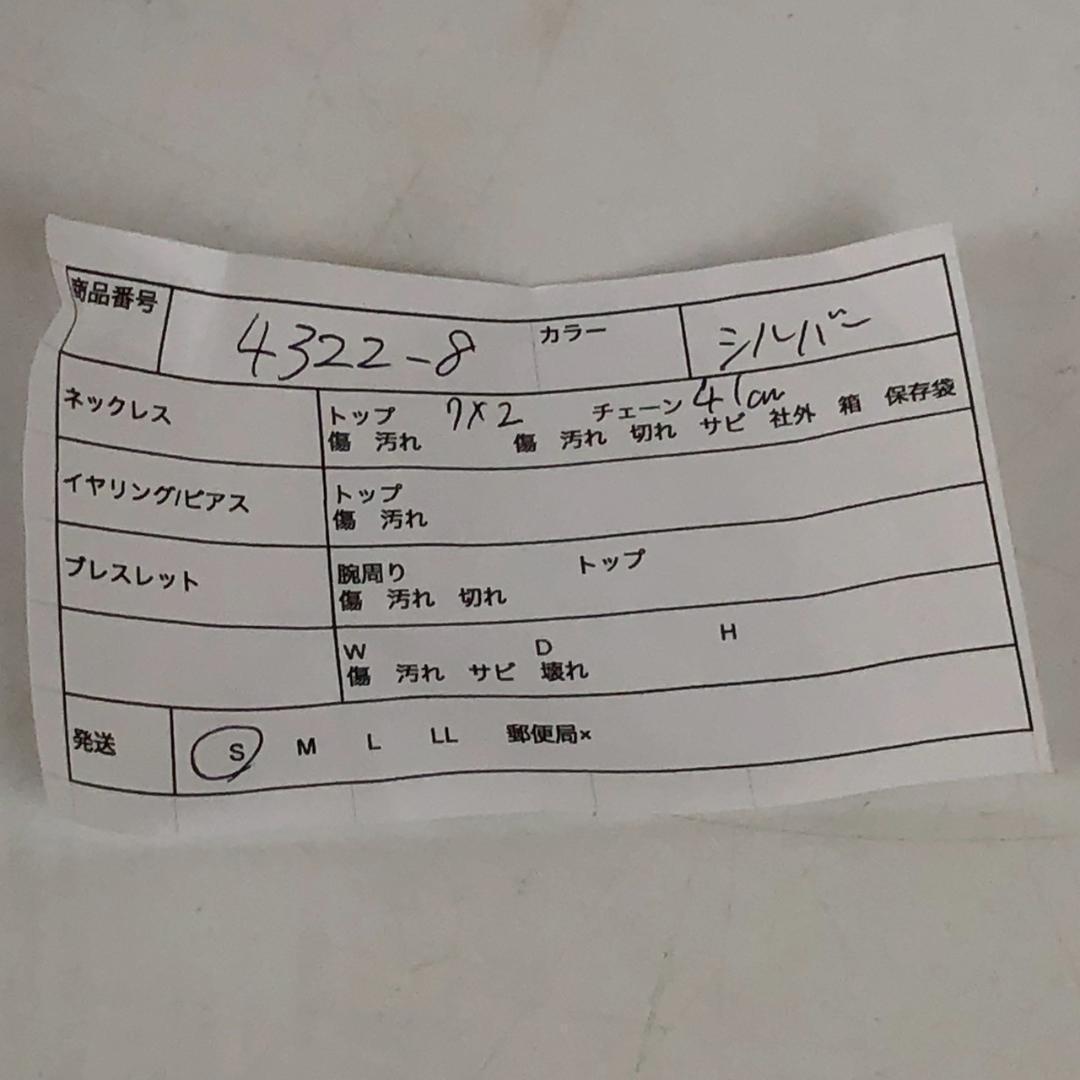 商品番号 4322-8 カラー シルバー
ネックレス トップ 7×2 チェーン 41cm
傷 汚れ 傷 汚れ 切れ サビ 社外 箱 保存袋
イヤリング/ピアス トップ
傷 汚れ
ブレスレット 腕周り トップ
傷 汚れ 切れ
W D H
傷 汚れ サビ 壊れ
発送 S M L LL 郵便局×